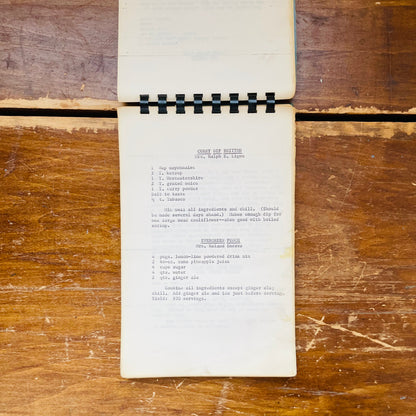 CURRY DIP
Mrs. Ralph E.
1 cup mayonnaise
1 T. catsup
1 T. Worcestershire
2 T. grated onion
1 T. curry powder
Salt to taste
t. Tabasco
Mix well all ingredients and chill. (Should
be made several days ahead.) Makes enough dip for
one large head cauliflower--also good with boiled
shrimp.
EVERGREEN PUNCH
Mrs. Roland
4 pkgs. lemon-lime powdered drink mix
2 cans pineapple juice
4 cups sugar
4 qts. water
2 qts. ginger ale
Combine all ingredients except ginger ale;
chill. Add ginger ale and ice just before serving.
Yield: servings.